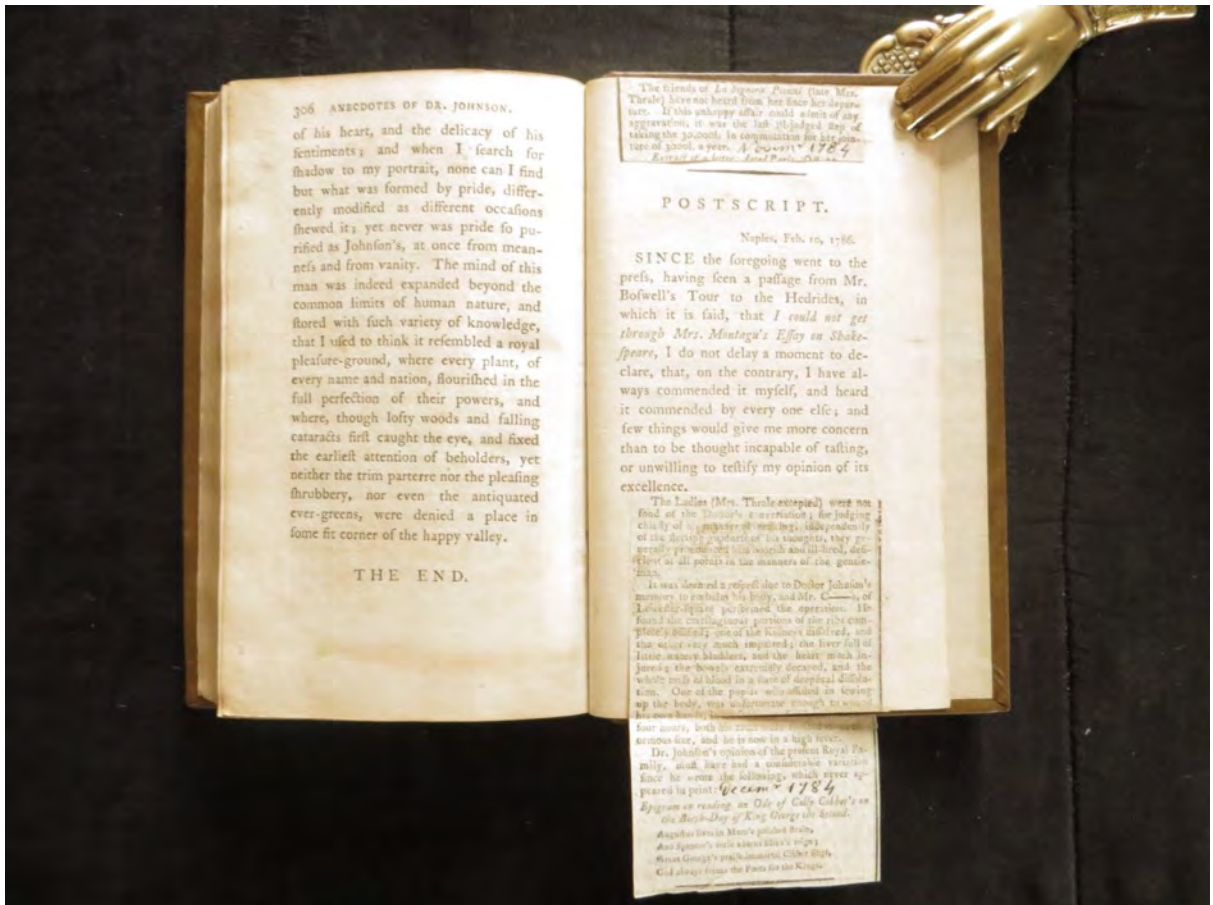 306 ANECDOTES OF DR. JOHNSON.
of his heart, and the delicacy of his
ſentiments; and when I ſearch for
ſhadow to my portrait, none can I find
but what was formed by pride, differ-
ently modified as different occaſions
ſhewed it; yet never was pride ſo pu-
rified as Johnſon's, at once from mean-
neſs and from vanity. The mind of this
man was indeed expanded beyond the
common limits of human nature, and
ſtored with ſuch variety of knowledge,
that I uſed to think it reſembled a royal
pleaſure-ground, where every plant, of
every name and nation, flouriſhed in the
full perfection of their powers, and
where, though lofty woods and falling
cataracts firſt caught the eye, and fixed
the earlieſt attention of beholders, yet
neither the trim parterre nor the pleaſing
ſhrubbery, nor even the antiquated
ever-greens, were denied a place in
ſome fit corner of the happy valley.
THE END.
The friends of La Signora Piozzi (late Mrs.
Thrale) have not heard from her ſince her depar-
ture. If this unhappy affair could admit of any
aggravation, it was the laſt ill-judged ſtep of
taking the 30,000l. in commutation for her join-
ture of 3000l. a year. Novemr 1784
Extract of a letter
POSTSCRIPT.
Naples, Feb. 10, 1786.
SINCE the foregoing went to the
preſs, having ſeen a paſſage from Mr.
Boſwell's Tour to the Hedrides, in
which it is ſaid, that I could not get
through Mrs. Montagu's Eſſay on Shake-
ſpeare, I do not delay a moment to de-
clare, that, on the contrary, I have al-
ways commended it myſelf, and heard
it commended by every one elſe; and
few things would give me more concern
than to be thought incapable of taſting,
or unwilling to teſtify my opinion of its
excellence.
The Ladies (Mrs. Thrale excepted) were not
fond of the Doctor's converſation; for judging
chiefly of a manner of independently
of the of his thoughts, they ge-
nerally pronounced him booriſh and ill-bred, defi-
cient at all points in the manners of the gentle-
man.
It was deemed a reſpect due to Doctor Johnſon's
memory to embalm his body, and Mr. C——s, of
Leiceſter-ſquare performed the operation. He
found the cartilaginous portions of the ribs com-
pletely oſſified; one of the kidneys diſſolved, and
the other very much impaired; the liver full of
little watery bladders, and the heart much in-
jured; the bowels extremely decayed, and the
whole maſs of blood in a ſtate of diſſolu-
tion. One of the pupils who aſſiſted in ſewing
up the body, was unfortunate enough to wound
his own hands,
four hours, both his
ormous ſize, and he is now in a high fever.
Dr. Johnſon's opinion of the preſent Royal Fa-
mily, muſt have had a conſiderable variation
ſince he wrote the following, which never ap-
peared in print: Decemr 1784
Epigram on reading an Ode of Colly Cibber's on
the Birth-Day of King George the Second.
Auguſtus lives in Maro's poliſhed ſtrain,
And Spenſer's verſe adorns Eliza's reign;
Great George's praiſe immortal Cibber ſings,
God always forms the Poets for the Kings.